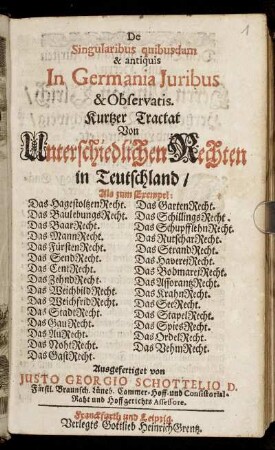 De
Singularibus quibusdam
& antiquis
In Germania Juribus
& Observatis.
Kurtzer Tractat
Von
Unterschiedlichen Rechten
in Teutschland /
Als zum Exempel:
Das HagestoltzenRecht.
Das BaulebungsRecht.
Das BaarRecht.
Das MannRecht.
Das FürstenRecht.
Das SendRecht.
Das CentRecht.
Das ZehndRecht.
Das WeichbildRecht.
Das WeichfridRecht.
Das StadtRecht.
Das GauRecht.
Das AuRecht.
Das NohtRecht.
Das GastRecht.
Das GartenRecht.
Das SchillingsRecht.
Das SchupfflehnRecht.
Das RutscharRecht.
Das StrandRecht.
Das HavereiRecht.
Das BodmareiRecht.
Das AfforantzRecht.
Das KrahnRecht.
Das SeeRecht.
Das StapelRecht.
Das SpiesRecht.
Das OrdelRecht.
Das VehmRecht.
Ausgefertiget von
JUSTO GEORGIO SCHOTTELIO D.
Fürstl. Braunsch. Lüneb. Cammer-Hoff-und Consistorial-
Raht und Hoffgerichts Assessore.
Franckfurth und Leipzig.
Verlegts Gottlieb Heinrich Grentz.